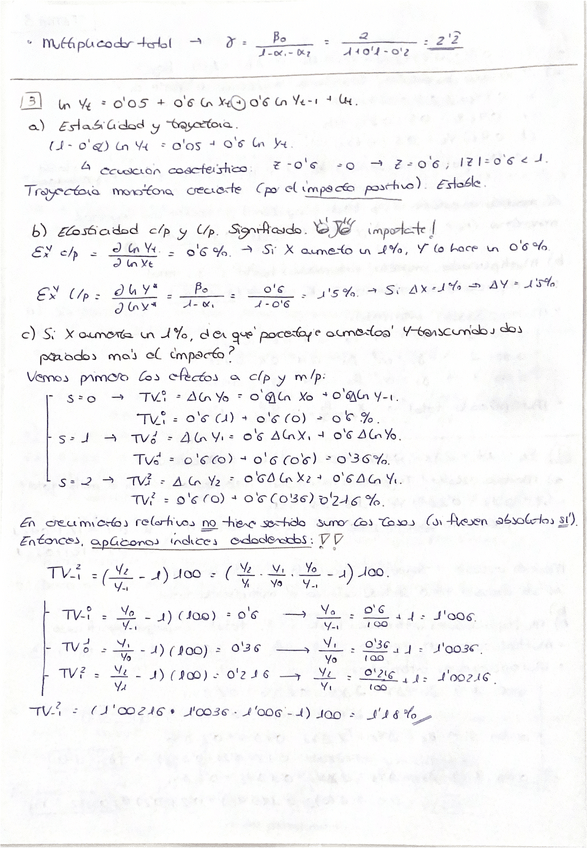 • Multiplicador total → γ = β0 / (1-α1-α2) = 2 / (1+0'1-0'2) = 2'2
3 ln Yt = 0'05 + 0'6 ln Xt + 0'6 ln Yt-1 + Ut.
a) Estabilidad y trayectoria.
(1-0'6L) ln Yt = 0'05 + 0'6 ln Xt.
↳ ecuación característica: z-0'6 = 0 → z = 0'6; |z| = 0'6 < 1.
Trayectoria monótona creciente (por el impacto positivo). Estable.
b) Elasticidad c/p y l/p. Significado. importante!
Exy c/p = ∂ ln Yt / ∂ ln Xt = 0'6%. → Si X aumenta un 1%, Y lo hace un 0'6%.
Exy l/p = ∂ ln Y* / ∂ ln X* = β0 / (1-α1) = 0'6 / (1-0'6) = 1'5%. → Si ΔX=1% ⇒ ΔY = 1'5%
c) Si X aumenta un 1%, ¿en qué porcentaje aumentará Y transcurridos dos
periodos más el impacto?
Vemos primero los efectos a c/p y m/p:
s=0 → TV-1^0 = Δ ln Y0 = 0'6 Δ ln X0 + 0'6 Δ ln Y-1.
TV-1^0 = 0'6 (1) + 0'6 (0) = 0'6%.
s=1 → TV0^1 = Δ ln Y1 = 0'6 Δ ln X1 + 0'6 Δ ln Y0.
TV0^1 = 0'6(0) + 0'6 (0'6) = 0'36%.
s=2 → TV1^2 = Δ ln Y2 = 0'6 Δ ln X2 + 0'6 Δ ln Y1.
TV1^2 = 0'6 (0) + 0'6 (0'36) 0'216%.
En crecimientos relativos no tiene sentido sumar las tasas (si fuesen absolutos sí).
Entonces, aplicamos índices encadenados: !!
TV-1^2 = (Y2/Y-1 - 1) 100 = (Y2/Y1 · Y1/Y0 · Y0/Y-1 - 1) 100.
TV-1^0 = Y0/Y-1 - 1) (100) = 0'6 → Y0/Y-1 = 0'6/100 + 1 = 1'006.
TV0^1 = Y1/Y0 - 1) (100) = 0'36 → Y1/Y0 = 0'36/100 + 1 = 1'0036.
TV1^2 = Y2/Y1 - 1) (100) = 0'216 → Y2/Y1 = 0'216/100 + 1 = 1'00216.
TV-1^2 = (1'00216 · 1'0036 · 1'006 - 1) 100 = 1'18%